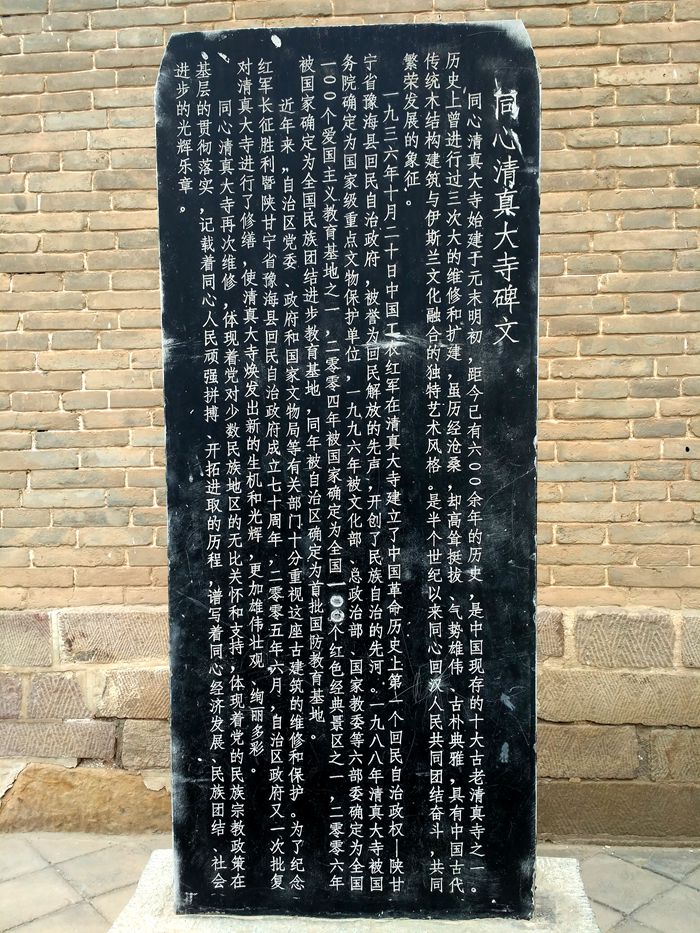 同心清真大寺碑文
同心清真大寺始建于元末明初，距今已有六００余年的历史，是中国现存的十大古老清真寺之一。
历史上曾进行过三次大的维修和扩建，虽历经沧桑，却高耸挺拔、气势雄伟、古朴典雅，具有中国古代
传统木结构建筑与伊斯兰文化融合的独特艺术风格。是半个世纪以来同心回汉人民共同团结奋斗，共同
繁荣发展的象征。
一九三六年十月二十日中国工农红军在清真大寺建立了中国革命历史上第一个回民自治政权—陕甘
宁省豫海县回民自治政府，被誉为回民解放的先声，开创了民族自治的先河。一九八八年清真大寺被国
务院确定为国家级重点文物保护单位，一九九六年被文化部、总政治部、国家教委等六部委确定为全国
一００个爱国主义教育基地之一，二零零四年被国家确定为全国一００个红色经典景区之一，二零零六年
被国家确定为全国民族团结进步教育基地，同年被自治区确定为首批国防教育基地。
近年来，自治区党委、政府和国家文物局等有关部门十分重视这座古建筑的维修和保护。为了纪念
红军长征胜利暨陕甘宁省豫海县回民自治政府成立七十周年，二零零五年六月，自治区政府又一次批复
对清真大寺进行了修缮，使清真大寺焕发出新的生机和光辉，更加雄伟壮观、绚丽多彩。
同心清真大寺再次维修，体现着党对少数民族地区的无比关怀和支持，体现着党的民族宗教政策在
基层的贯彻落实，记载着同心人民顽强拼搏、开拓进取的历程，谱写着同心经济发展、民族团结、社会
进步的光辉乐章。